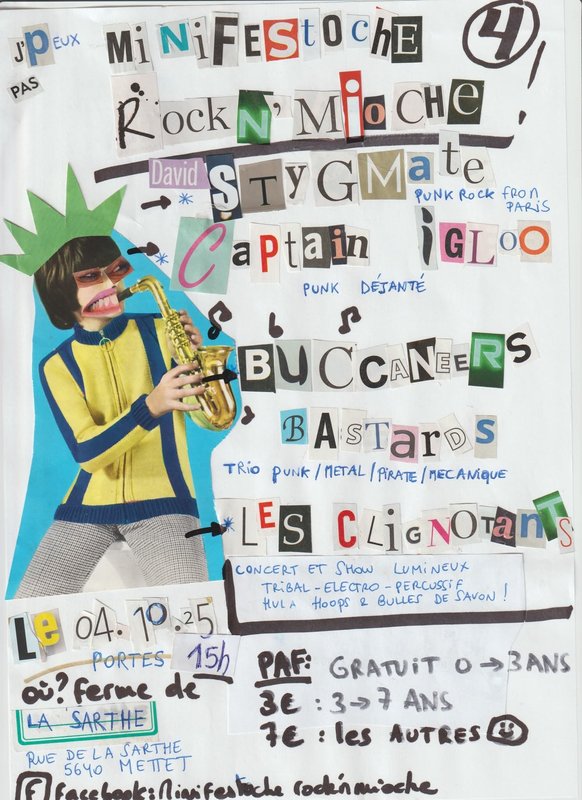 J'PEUX
PAS
MiNiFESTocHE
4
RocK N' MiocHE !
David STYGMate
PUNK ROCK from
PARIS
Captain iGLOO
PUNK DÉJANTÉ
BUCCANEERS
BASTARDS
TRIO PUNK/METAL/PIRATE/MECANIQUE
LES CLiGNOTantS
CONCERT ET SHOW LUMINEUX
TRIBAL-ELECTRO-PERCUSSIF
HULA HOOPS & BULLES DE SAVON !
Le 04.10.25
PORTES 15h
où? Ferme de
LA SARTHE
RUE DE LA SARTHE
5640 METTET
PAF: GRATUIT 0 → 3 ANS
3€ : 3 → 7 ANS
7€ : les AUTRES
f Facebook: Minifestoche rock'n mioche